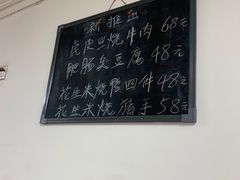 新推出
昆皮豆烧牛肉68元
肥肠炆豆腐48元
花生米烧鸭四件48元
花生米烧猪手58元